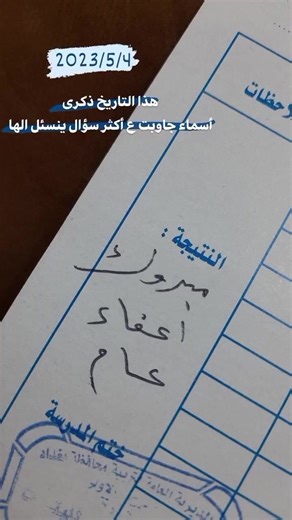 2023/5/4
هذا التاريخ ذكرى
أسماء جاوبت ع أكثر سؤال ينسئل الها
النتيجة :
مبروك
أعفاء
عام
ختم المدرسة
المديرية العامة لتربية محافظة بغداد